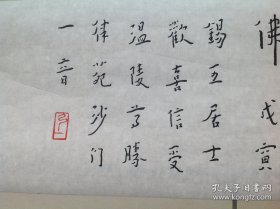 佛 戊寅
錫五居士
歡喜信受
溫陵尊勝
律苑沙门
一音
孔夫子旧书网